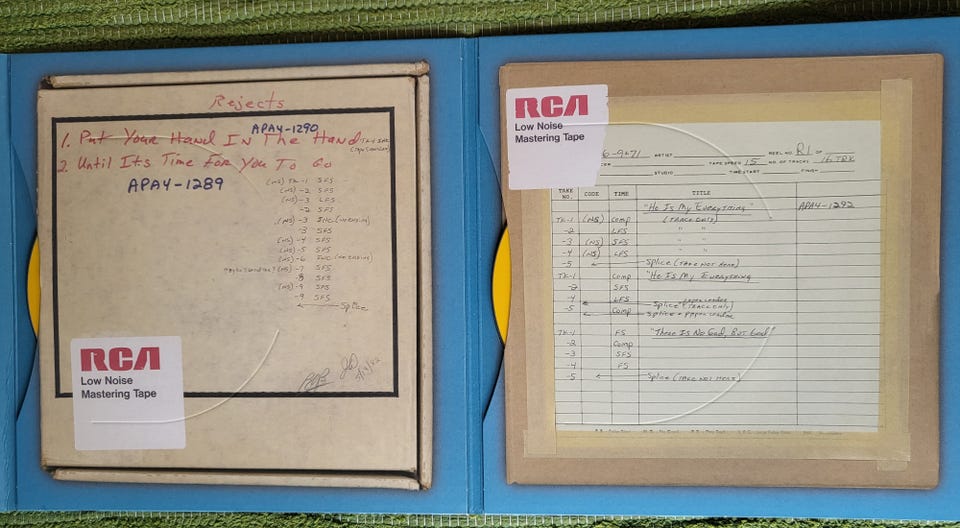 Rejects
APA4-1290
1. Put Your Hand In The Hand
2. Until Its Time For You To Go
APA4-1289
(NS) TK-1 SFS
(NS) -2 SFS
(NS) -3 LFS
-2 SFS
(NS) -3 INC
-3 SFS
(NS) -4 SFS
(NS) -5 SFS
(NS) -6 INC
(NS) -7 SFS
-8 SFS
(NS) -9 SFS
-9 SFS
Splice
RCA
Low Noise
Mastering Tape
RCA
Low Noise
Mastering Tape
ARTIST REEL NO. R1 OF
TAPE SPEED 15 NO. OF TRACKS 16 TRK
STUDIO TIME START FINISH
TAKE NO. CODE TIME TITLE
"He Is My Everything" APA4-1292
TK-1 (NS) Comp (TRACK ONLY)
-2 LFS " "
-3 (NS) SFS " "
-4 (NS) LFS " "
-5 Splice (TAKE NOT HERE)
TK-1 Comp "He Is My Everything
-2 SFS
-4 LFS Splice (TRACK ONLY)
-5 Comp Splice + paper leader
TK-1 FS "There Is No God, But God"
-2 Comp
-3 SFS
-4 FS
-5 Splice (TAKE NOT HERE)